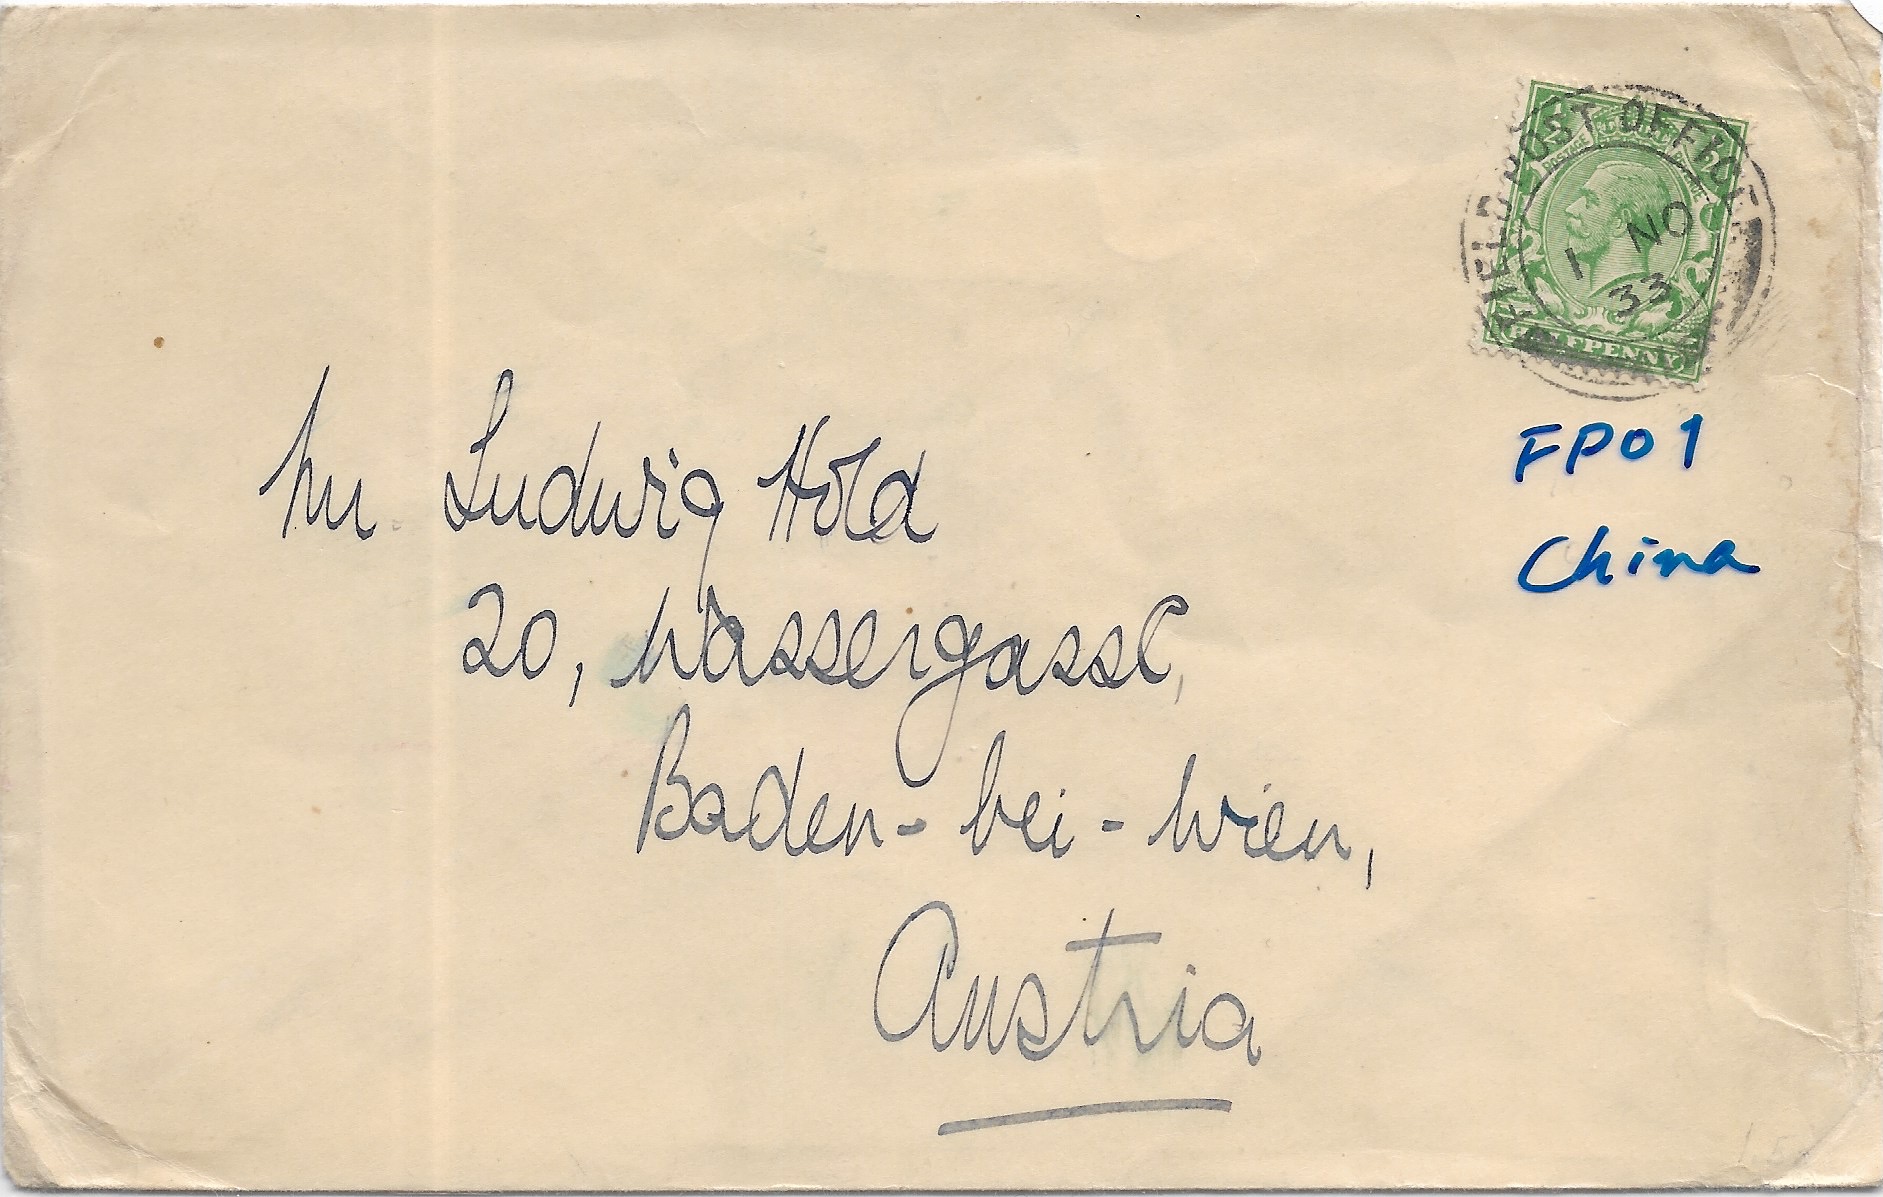 FIELD POST OFFICE
1 NO
33
POSTAGE
HALFPENNY
FPO 1
China
Mr. Ludwig Hold
20, Wassergasse,
Baden-bei-Wien,
Austria